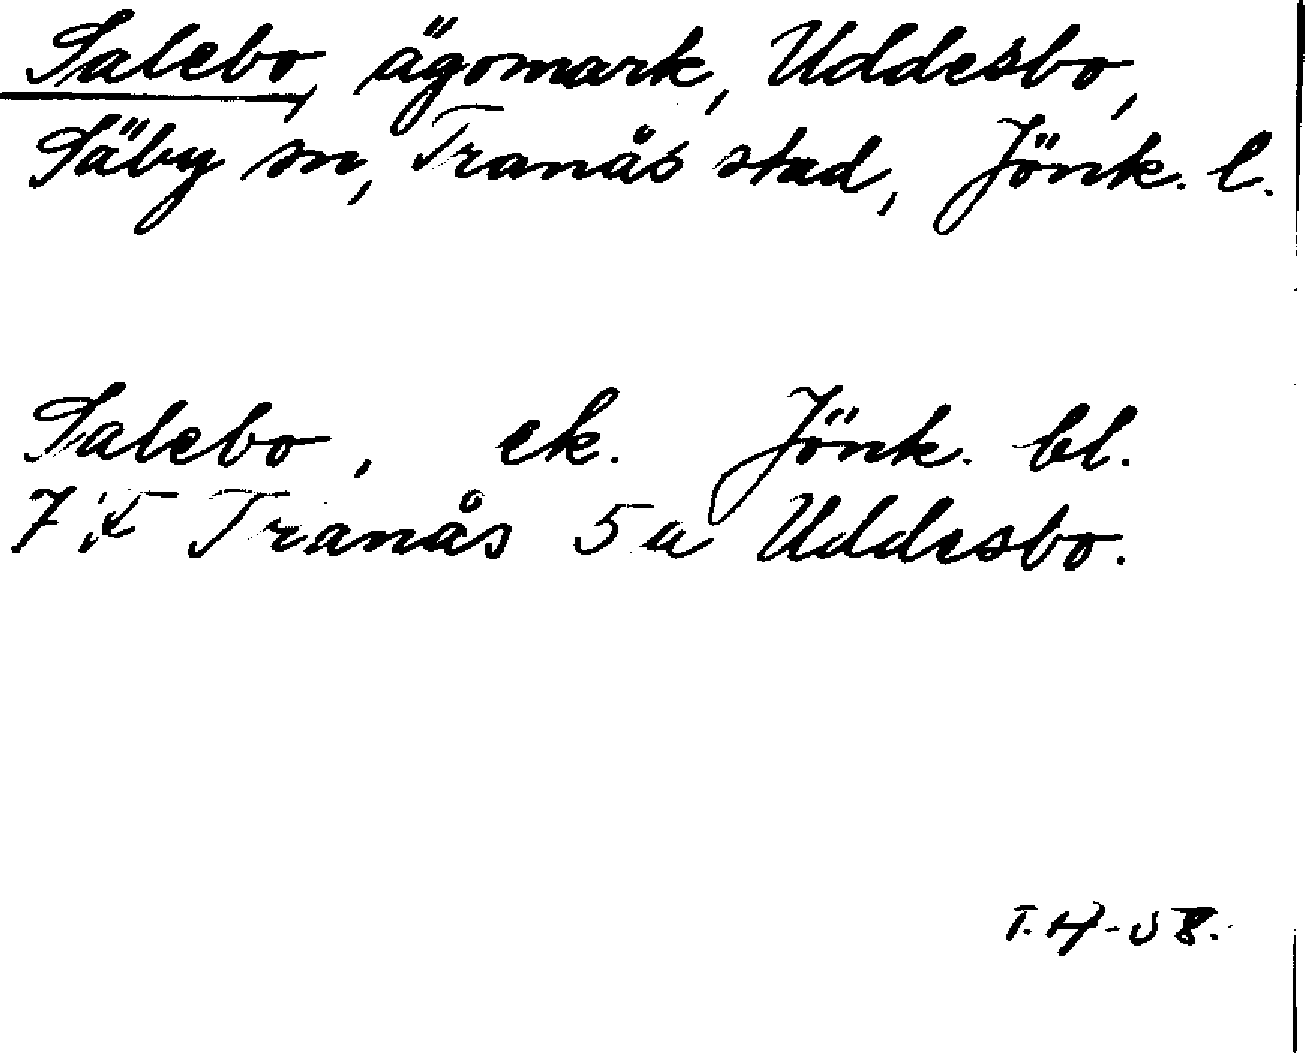 Salebo, ägomark, Uddesbo,
Säby sn, Tranås stad, Jönk. l.
Salebo, ek. Jönk. bl.
7 F Tranås 5 a Uddesbo.